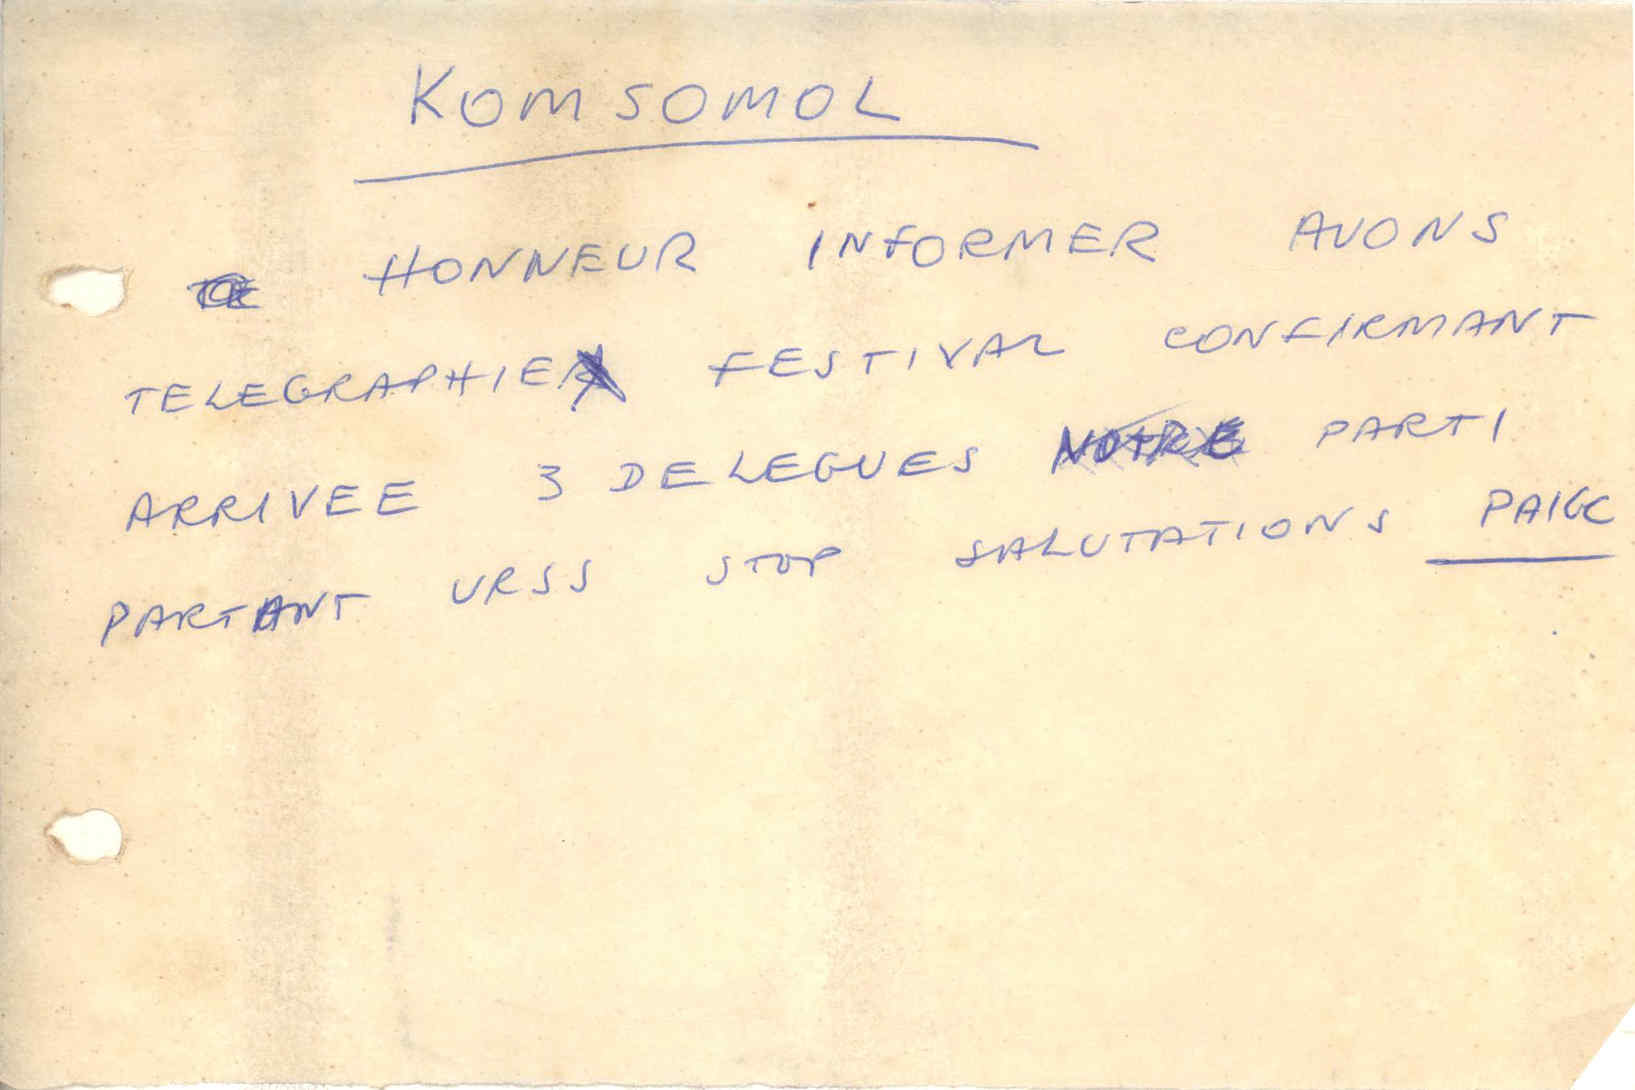 KOMSOMOL
HONNEUR INFORMER AVONS
TELEGRAPHIE FESTIVAL CONFIRMANT
ARRIVEE 3 DELEGUES NOTRE PARTI
PARTANT URSS STOP SALUTATIONS PAIGC